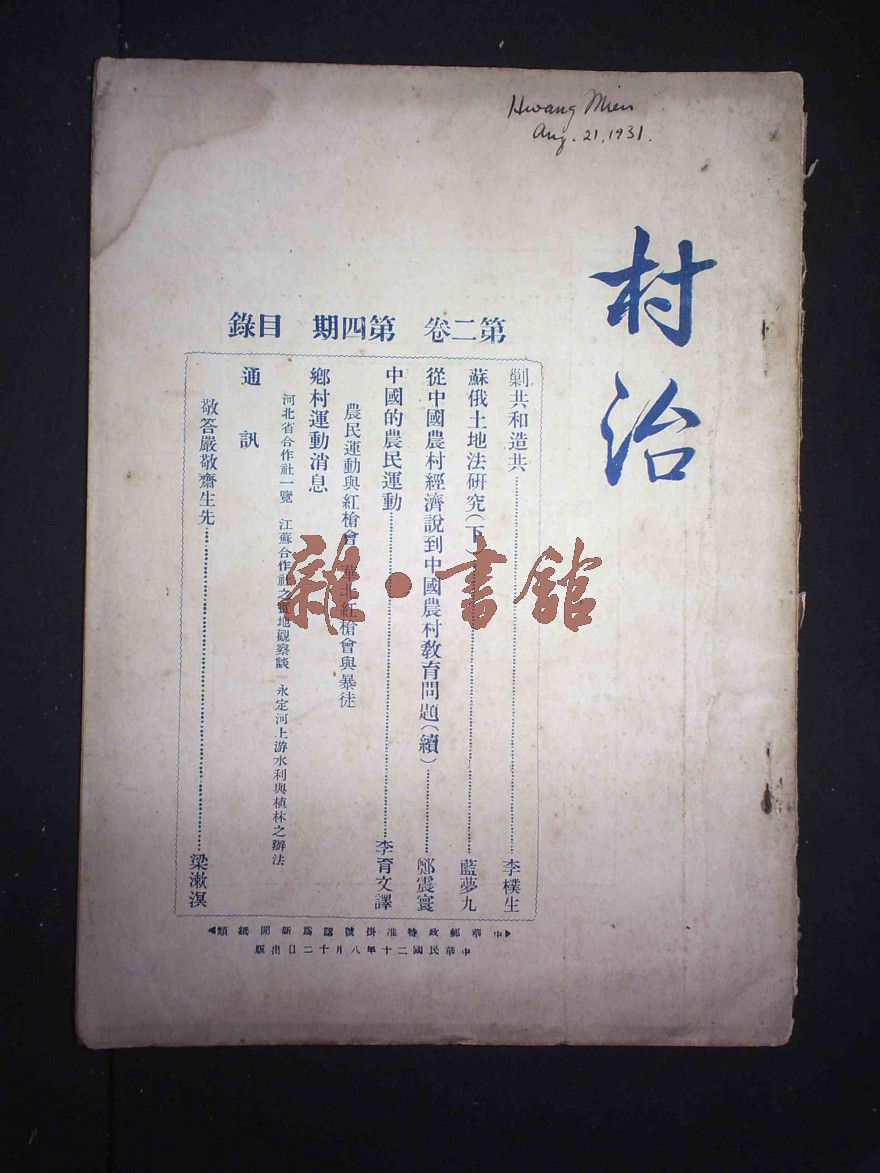 Hwang Mien
Aug. 21, 1931.
村治
第二卷 第四期 目錄
剿共和造共 李樸生
蘇俄土地法研究(下) 藍夢九
從中國農村經濟說到中國農村教育問題(續) 鄭震寰
中國的農民運動 李育文譯
農民運動與紅槍會 華北紅槍會與暴徒
鄉村運動消息
河北省合作社一覽 江蘇合作社之實地觀察談 永定河上游水利與植林之辦法
通訊
敬答嚴敬齋生先 梁漱溟
中華郵政特准掛號認爲新聞紙類
中華民國二十年八月十二日出版
雜·書館